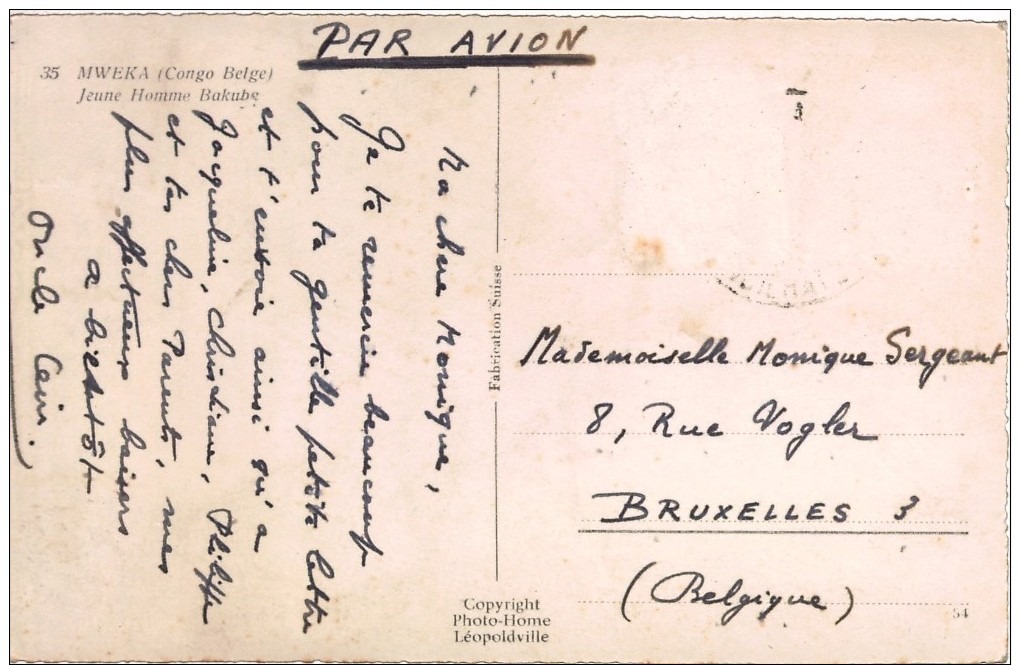 PAR AVION
35 MWEKA (Congo Belge)
Jeune Homme Bakuba
Ma chère Monique,
Je te remercie beaucoup
pour ta gentille petite lettre
et t'envoie ainsi qu'à
Jacqueline, Christiane, Philippe
et tes chers Parents, mes
plus affectueux baisers
a bientôt
Oncle
Fabrication Suisse
Mademoiselle Monique Sergeant
8, Rue Vogler
BRUXELLES 3
(Belgique)
54
Copyright
Photo-Home
Léopoldville